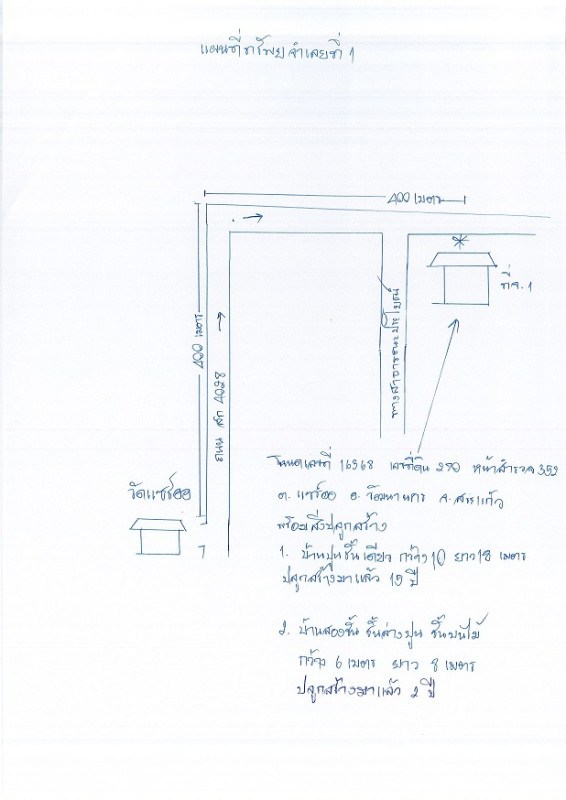 แผนที่ทรัพย์จำเลยที่ 1
400 เมตร
ที่จ.1
400 เมตร
ถนน สก 4028
ทางสาธารณะประโยชน์
วัดแซร์ออ
โฉนดเลขที่ 16968 เลขที่ดิน 290 หน้าสำรวจ 352
ต. แซร์ออ อ. วัฒนานคร จ. สระแก้ว
พร้อมสิ่งปลูกสร้าง
1. บ้านปูนชั้นเดียว กว้าง 10 ยาว 18 เมตร
ปลูกสร้างมาแล้ว 15 ปี
2. บ้านสองชั้น ชั้นล่างปูน ชั้นบนไม้
กว้าง 6 เมตร ยาว 8 เมตร
ปลูกสร้างมาแล้ว 2 ปี